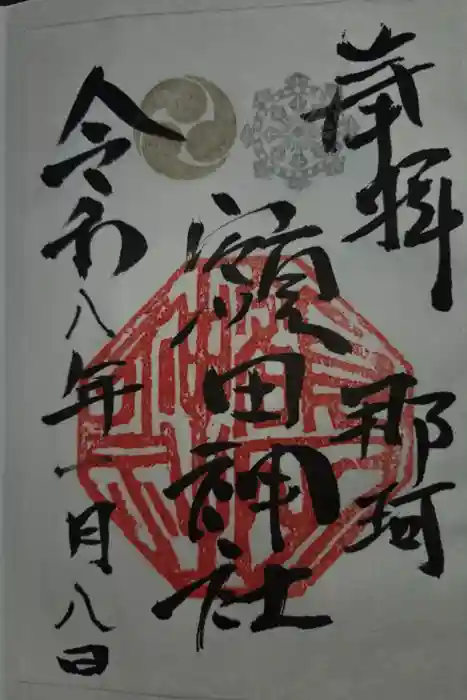 奉拝 那珂
額田神社
令和八年一月八日